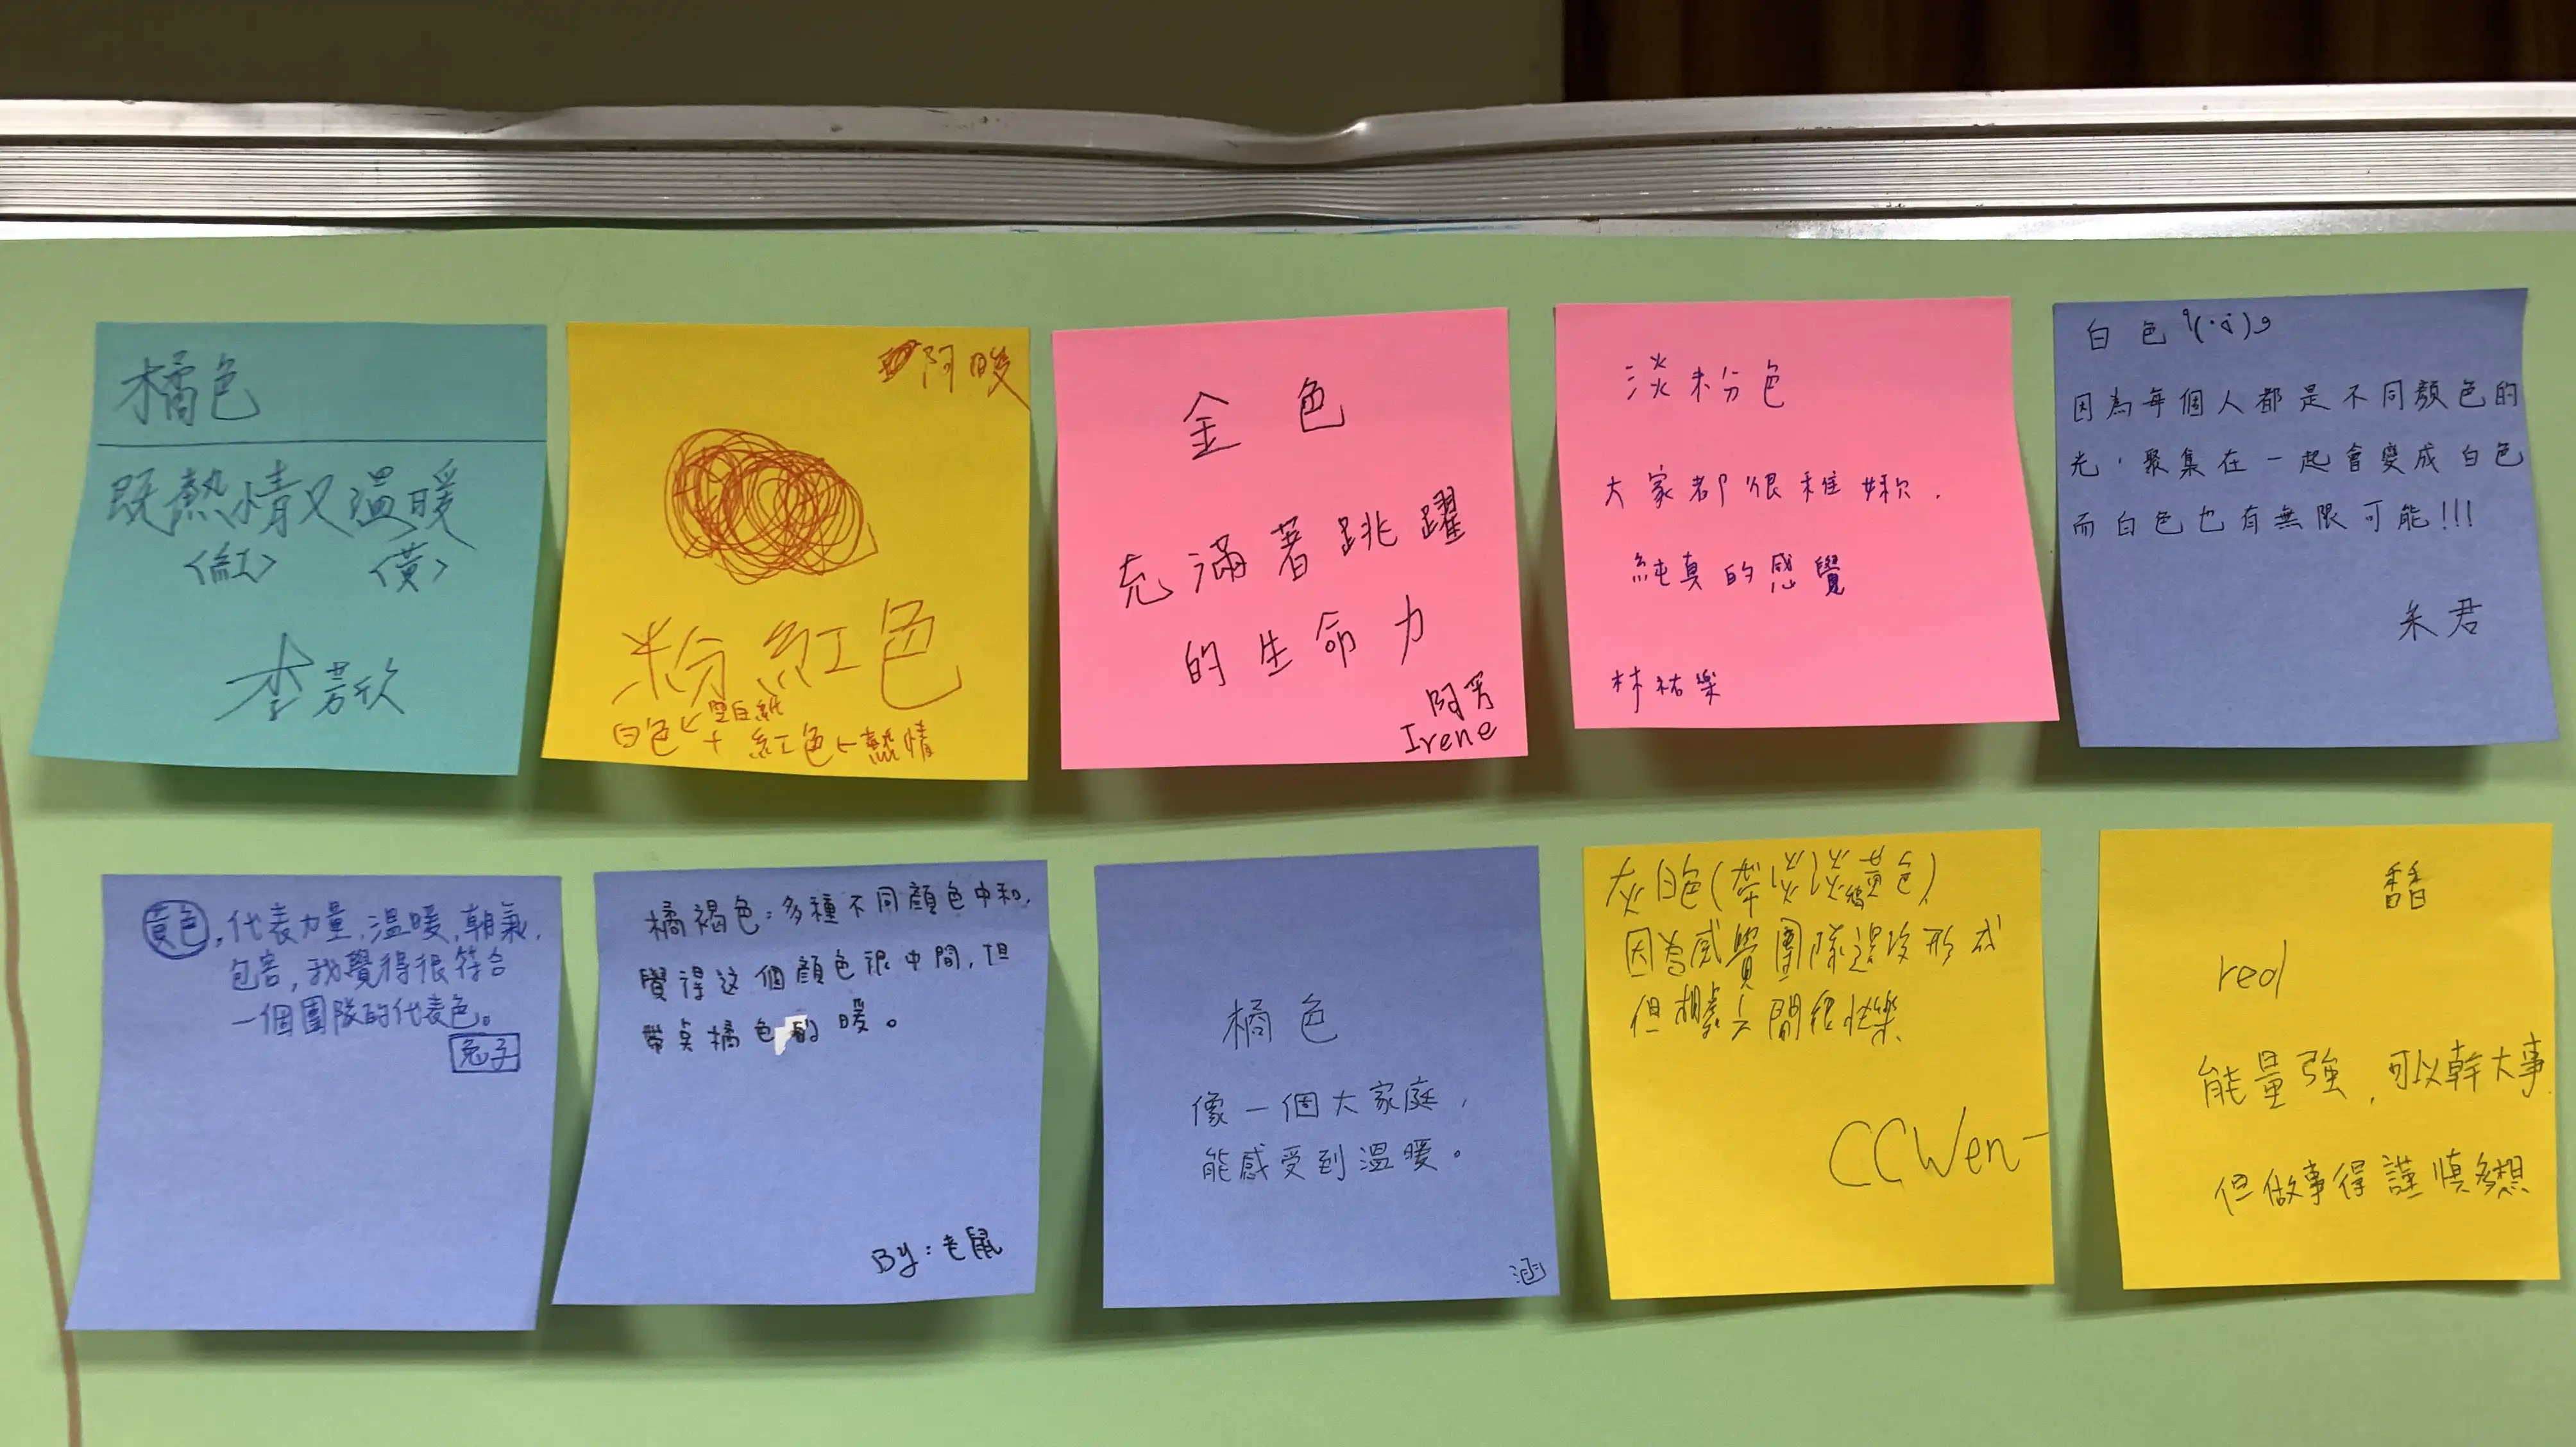 橘色
既熱情又溫暖
<紅> <黃>
李若欣
阿暖
粉紅色
白色←空白紙
+ 紅色←熱情
金色
充滿著跳躍
的生命力
阿芳
Irene
淡粉色
大家都很稚嫩.
純真的感覺
林祐樂
白色
因為每個人都是不同顏色的
光,聚集在一起會變成白色
而白色也有無限可能!!!
朱君
黃色,代表力量,溫暖,朝氣,
包容,我覺得很符合
一個團隊的代表色。
兔子
橘褐色:多種不同顏色中和,
覺得这個顏色很中間,但
帶点橘色的暖。
By:老鼠
橘色
像一個大家庭,
能感受到溫暖。
涵
灰白色(帶淡淡黃色)
因為感覺團隊還沒形成
但相處之間很快樂
CCWen
馨
red
能量強,可以幹大事
但做事得謹慎多想